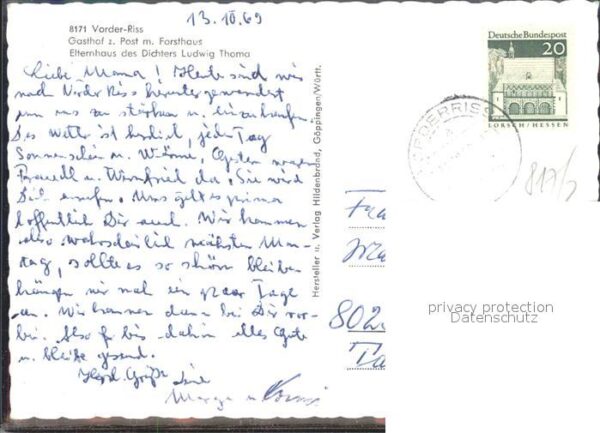 13.10.69
8171 Vorder-Riss
Gasthof z. Post m. Forsthaus
Elternhaus des Dichters Ludwig Thoma
Liebe Mama! Heute sind wir
nach Vorder Riss heruntergewandert
um uns zu stärken u. einzukaufen.
Das Wetter ist herrlich, jeden Tag
Sonnenschein u. Wärme, Gestern waren
u. Winfried da, Sie wird
Dich anrufen. Uns geht es prima
hoffentlich Dir auch. Wir kommen
also wahrscheinlich nächsten Mon-
tag, sollte es so schön bleiben
hängen wir noch ein paar Tage
an. Wir kommen dann bei Dir vor-
bei. Also bis dahin alles Gute
u. bleibe gesund.
Herzl. Grüße
Hersteller u. Verlag Hildenbrand, Göppingen/Württ.
Deutsche Bundespost
20
LORSCH/HESSEN
817/2
802
privacy protection
Datenschutz